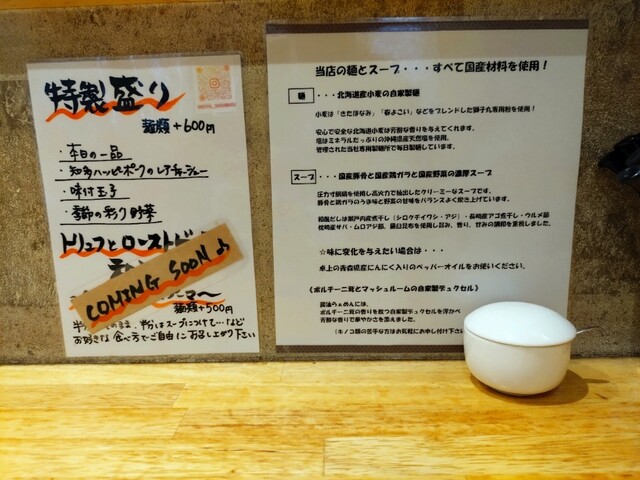 特製盛り
麺類+600円
・本日の一品
・知多ハッピーポークのレアチャーシュー
・味付玉子
・季節の彩り野菜
トリュフとロースト
COMING SOON♪
麺類+500円
お好きな食べ方でご自由にお召し上がり下さい
当店の麺とスープ・・・すべて国産材料を使用！
麺 ・・・北海道産小麦の自家製麺
小麦は「きたほなみ」「春よこい」などをブレンドした獅子丸専用粉を使用！
安心で安全な北海道小麦は芳醇な香りを与えてくれます。
塩はミネラルたっぷりの沖縄県産天然塩を使用。
管理された当社専用製麺所で毎日製麺しています。
スープ ・・・国産豚骨と国産鶏ガラと国産野菜の濃厚スープ
圧力寸胴鍋を使用し高火力で抽出したクリーミーなスープです。
豚骨と鶏ガラのうま味と野菜の甘味をバランスよく炊き上げています。
和風だしは瀬戸内産煮干し（シロクチイワシ・アジ）・長崎産アゴ煮干し・ウルメ節
枕崎産サバ・ムロアジ節、羅臼昆布を使用し旨み、香り、甘みの調和を重視しました。
☆味に変化を与えたい場合は・・・
卓上の青森県産にんにく入りのペッパーオイルをお使いください。
《ポルチーニ茸とマッシュルームの自家製デュクセル》
醤油らぁめんには、
ポルチーニ茸の香りを放つ自家製デュクセルを浮かべ
芳醇な香りで華やかさを添えました。
（キノコ類の苦手な方はお気軽にお申し付け下さい